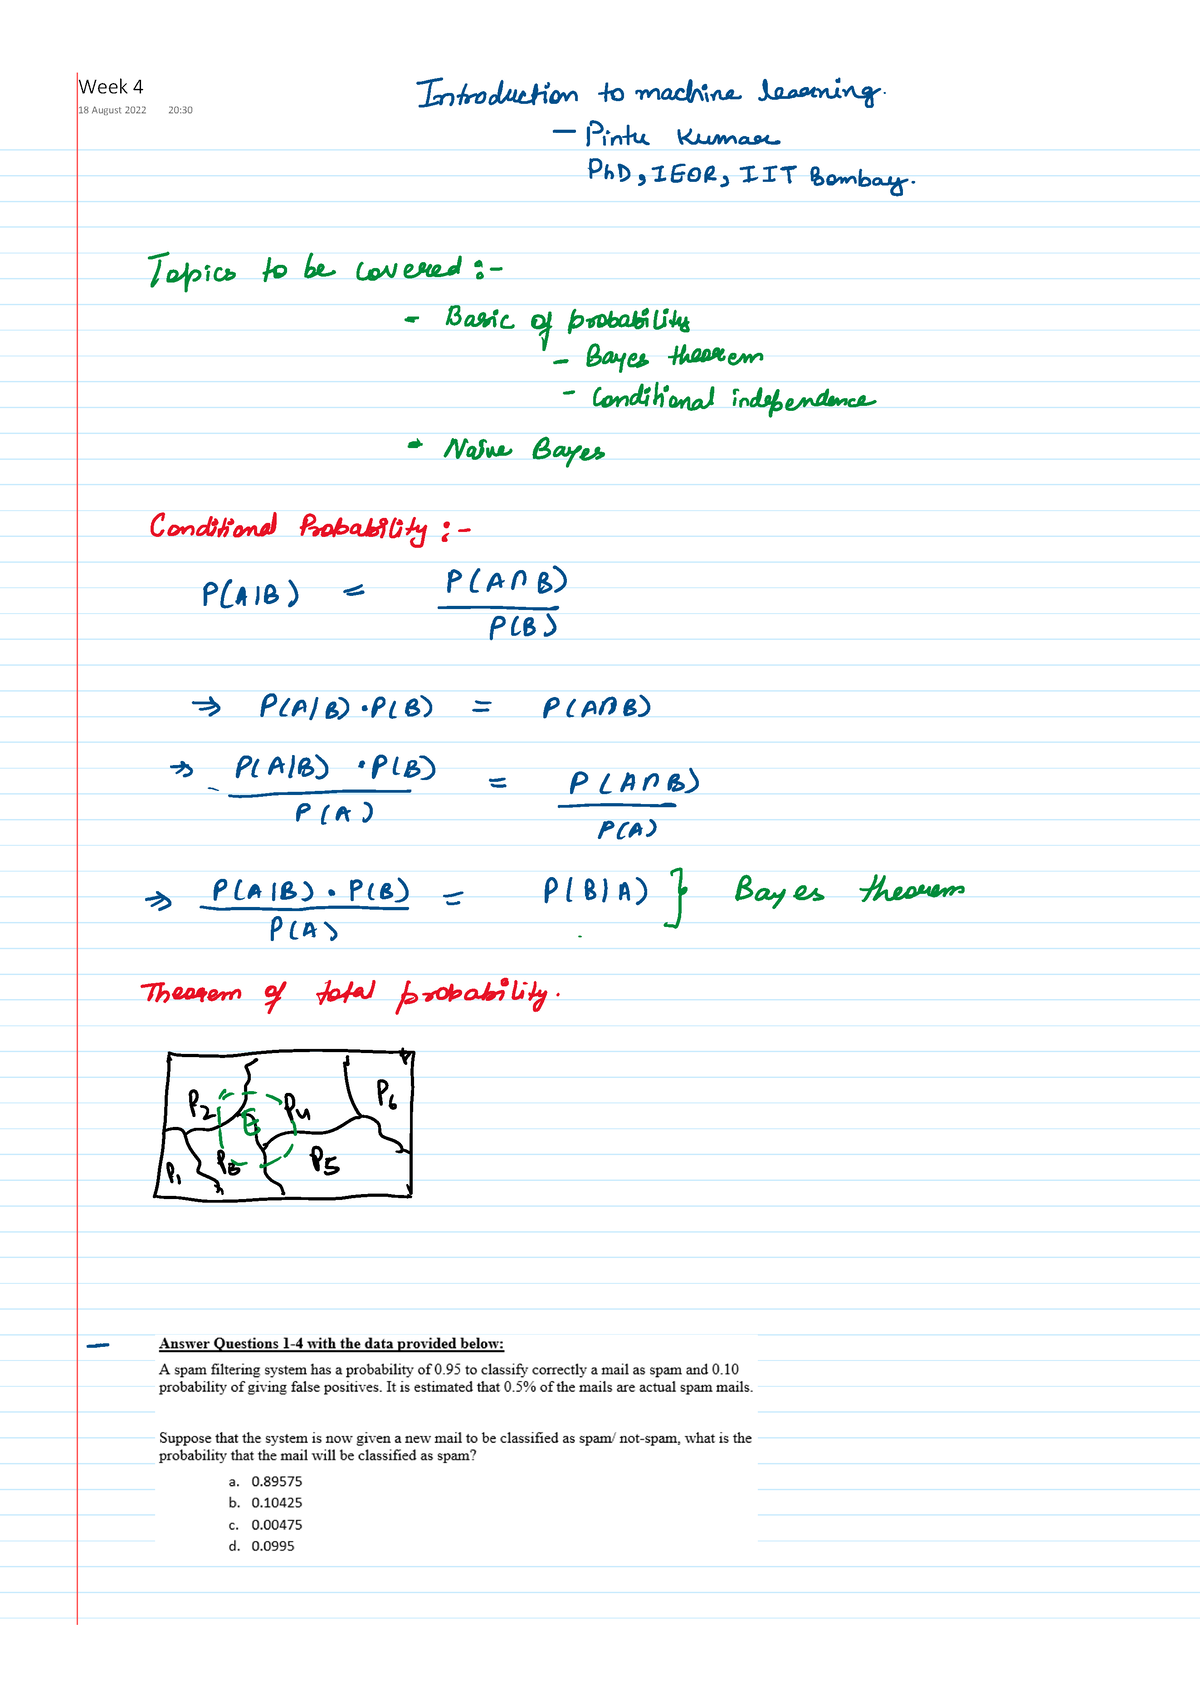 Week 4
18 August 2022 20:30
Introduction to machine learning.
- Pintu Kumar
PhD, IEOR, IIT Bombay.
Topics to be covered :-
- Basic of probability
- Bayes theorem
- Conditional independence
- Naïve Bayes
Conditional Probability :-
P(A|B) = P(A∩B)
P(B)
⇒ P(A|B) · P(B) = P(A∩B)
⇒ P(A|B) · P(B) = P(A∩B)
P(A) P(A)
⇒ P(A|B) · P(B) = P(B|A) } Bayes theorem
P(A)
Theorem of total probability.
P2 E P4 P6
P1 P3 P5
- Answer Questions 1-4 with the data provided below:
A spam filtering system has a probability of 0.95 to classify correctly a mail as spam and 0.10
probability of giving false positives. It is estimated that 0.5% of the mails are actual spam mails.
Suppose that the system is now given a new mail to be classified as spam/ not-spam, what is the
probability that the mail will be classified as spam?
a. 0.89575
b. 0.10425
c. 0.00475
d. 0.0995